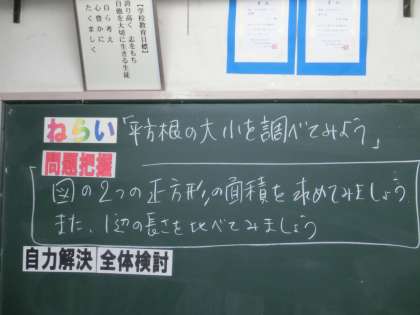 【学校教育目標】
誇り高く 志をもち
自他を大切に生きる生徒
自ら考え
心豊かに
たくましく
ねらい「平方根の大小を調べてみよう」
問題把握
図の2つの正方形の面積を求めてみましょう
また、1辺の長さを比べてみましょう
自力解決 全体検討